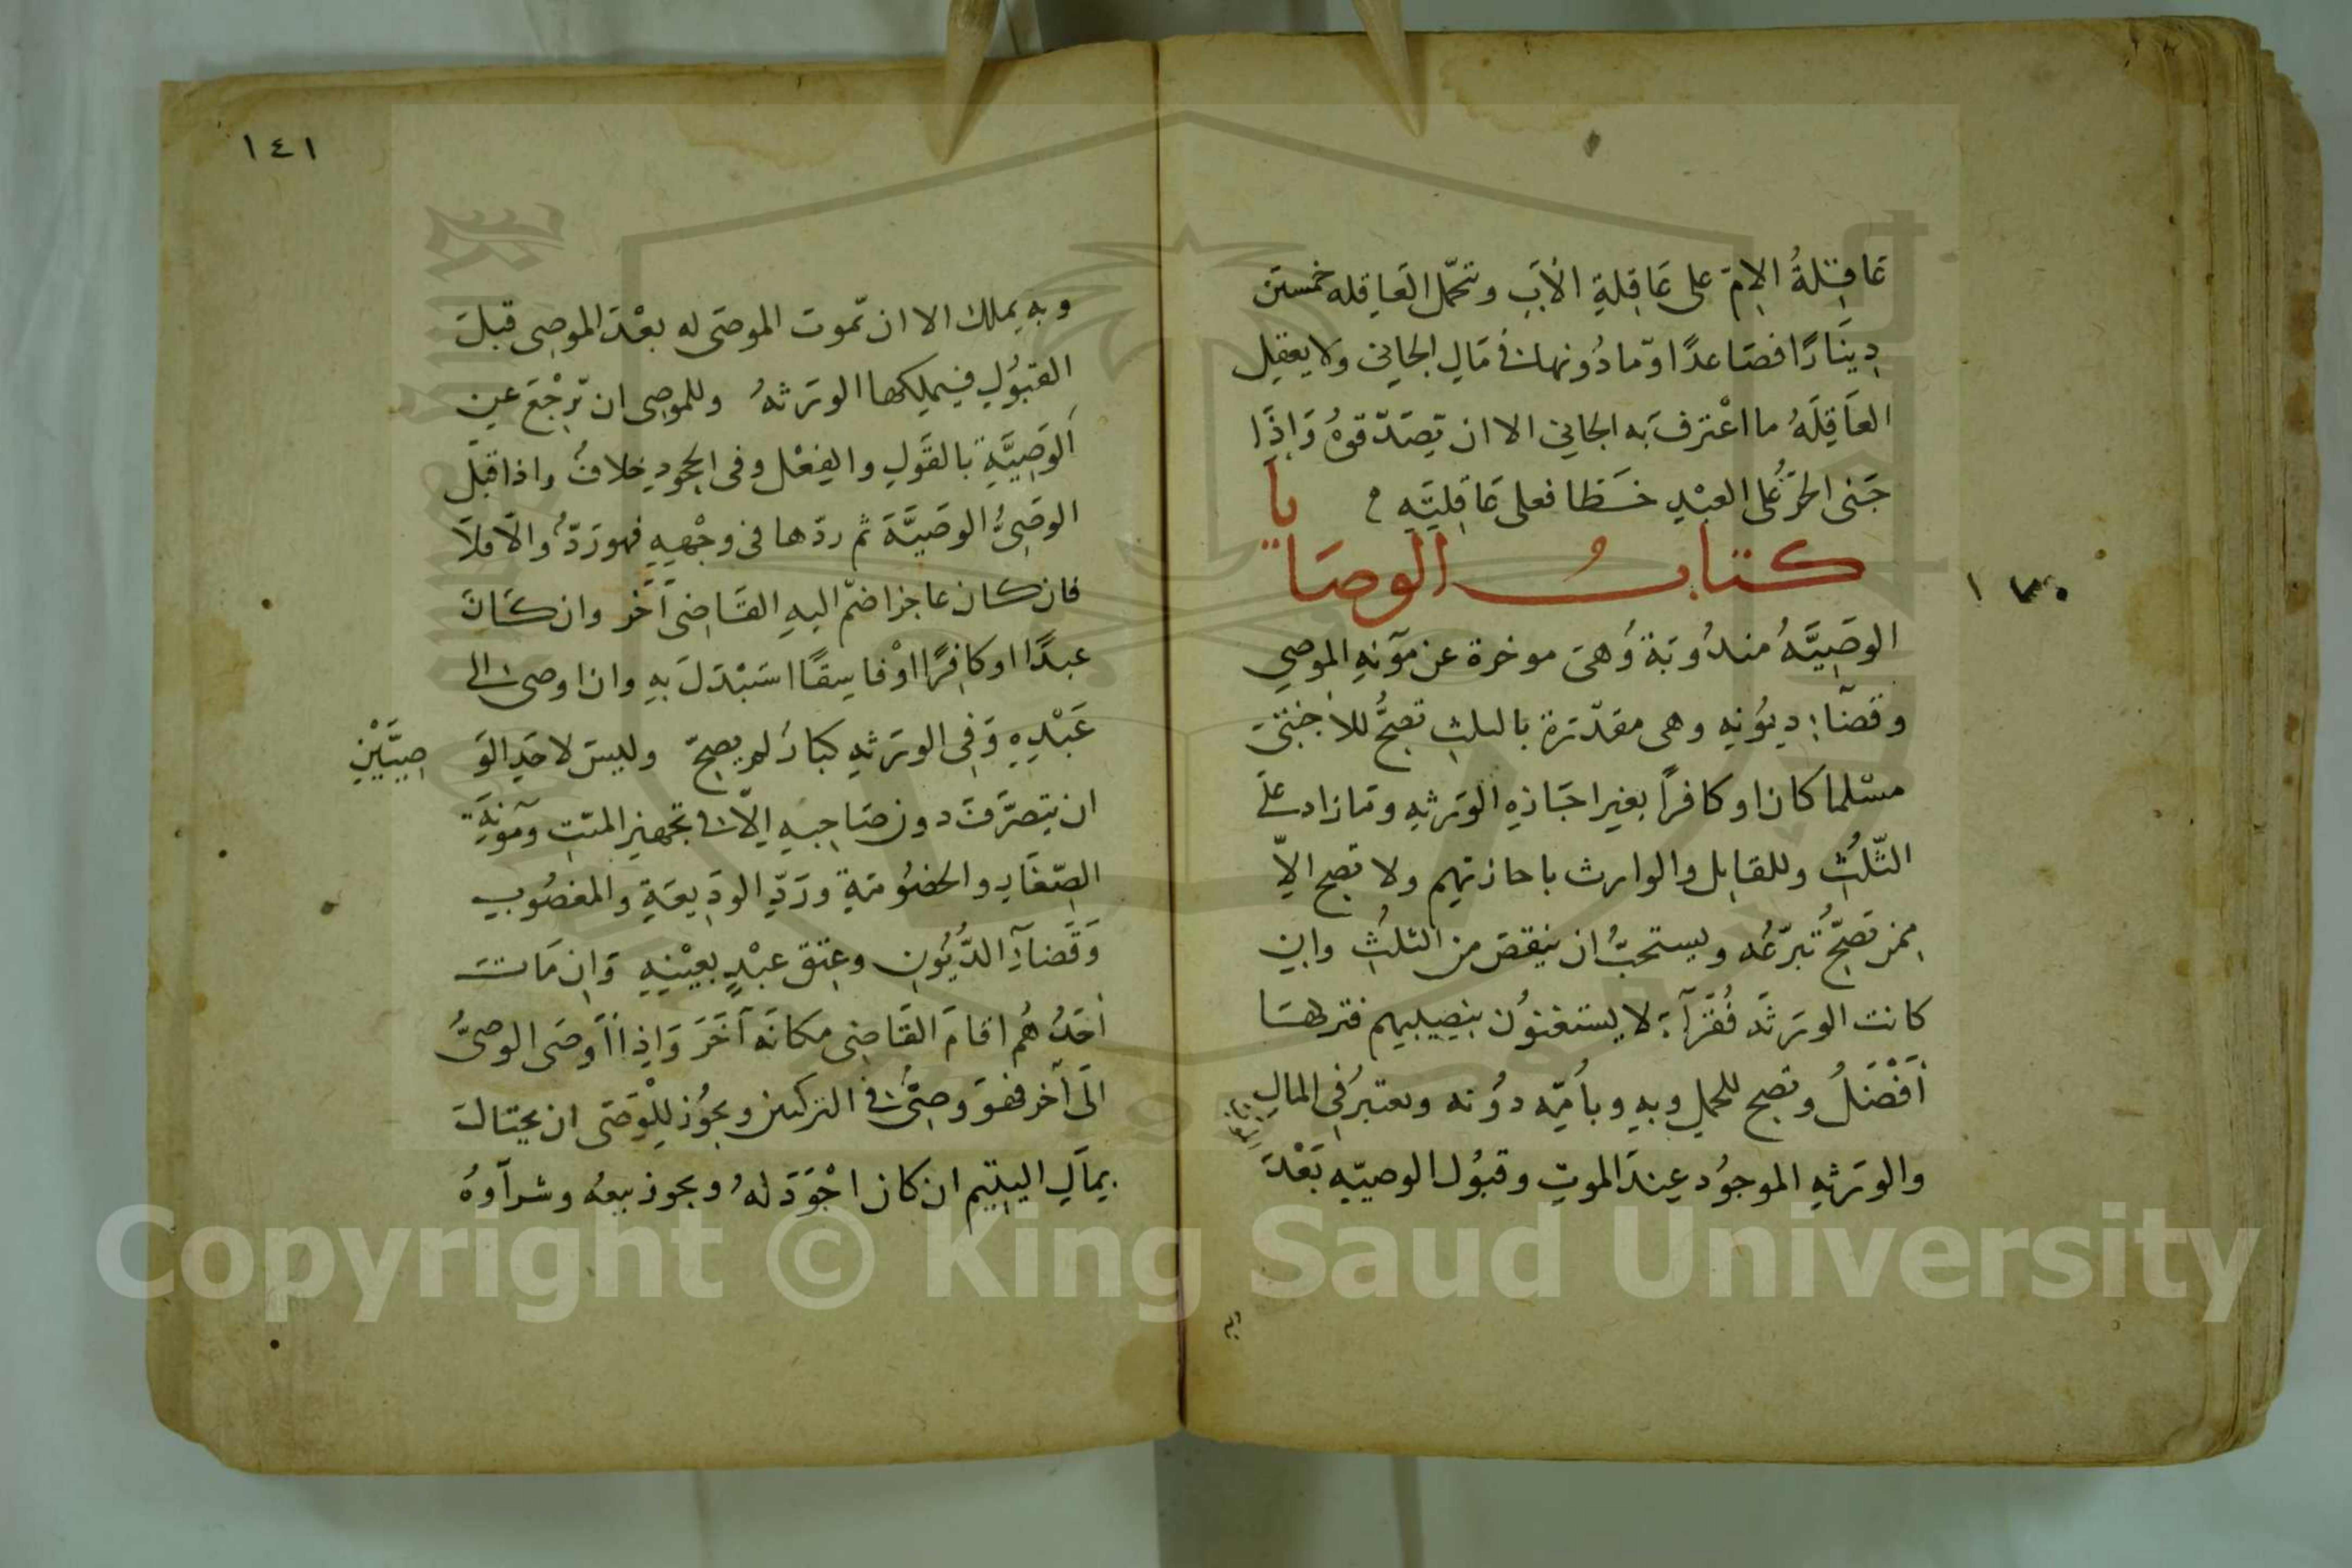 عَاقِلةُ الامّ على عَاقِلةِ الأبِ وتحمّل العَاقِله خمسين
دِينَارًا فصَاعدًا وّمادُونها فى مَالِ الجاني ولا يعقِل
العَاقِلَهُ ما اعْترفَ به الجاني الا ان تصَدّقوهُ وَاِذَا
جَنى الحرّ عَلى العبْدِ خَطا فعلى عَاقِلتِهِ
كتابُ الوصَايا
الوصِيَّهُ مندُوبَة وَهىَ موخرة عن مؤنهِ الموصِي
وقضآءِ ديُونِه وهى مقدّرة بالثلثِ تصِحُّ للأجْنبيّ
مسْلما كان او كافرًا بغيرِ اجَازهِ الوَرثهِ ومَا زاد على
الثّلثِ وللقاتِل والوارث باجازتهم ولا تصح الاّ
مِمن تصَحُّ تبرّعُه ويستحبُّ ان ينقصَ من الثلثِ وان
كانت الورثَه فُقَرآء لا يستغنوُن بنصِيبهم فتركهَا
أفْضَلُ وتصح للحمل وبهِ وبأُمّه دُونه ويعتبرُ فى المالِ
والورثهِ الموجوُد عِندَ الموتِ وقبُول الوصيّهِ بَعْدَ
١٤١
وبهِ يملك الا ان تّموت الموصَى له بعْدَ الموصِى قبلَ
القبُوْلِ فيملِكها الورَثهُ وللموصِى ان يّرْجْعَ عن
الوَصِيَّةِ بالقَولِ والفِعْل وفى الجحودِ خلافُ واذا قبلَ
الوصَىُّ الوصَيَّهَ ثم ردّها فى وجْههِ فهو رَدُّ والّا فلاَ
فان كان عاجزا ضمّ اليهِ القَاضِى آخَر وان كَانَ
عبدًا او كافِرًا اوْفاسِقًا اسَبْدَلَ بهِ وان اوصى الى
عَبْدِهِ وَفِى الورَثهِ كبَارُ لم يصِحّ وليسَ لاحَدِ الوَصِيَّيْنِ
ان يتصرَّفَ دون صَاحِبهِ اِلّا فى تجهيز الميّتِ ومَؤنَةِ
الصّغَارِ والخصُومَةِ ورَدِّ الودِيعَةِ والمغصُوبِ
وَقَضآءِ الدُّيُونِ وعِتقِ عبْدٍ بعيْنِهِ وَان مَاتَ
أحَدُهُم اقامَ القَاضِى مكانَه آخَرَ وَاِذا أوصَى الوصِىُّ
الى آخر فهوَ وصِىُّ فى التركتين ويجوُز لِلْوَصَى ان يحتالَ
بِمالِ اليتِيم ان كان اجْوَدَ لهُ ويجوز بيعُه وشرآوهُ
Copyright © King Saud University